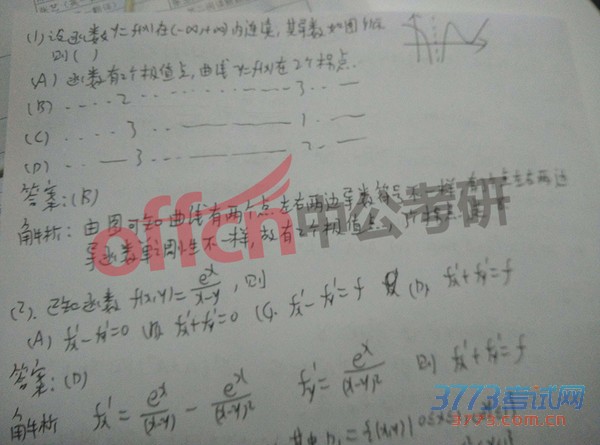 (1) 设函数 y=f(x) 在 (-∞,+∞) 内连续, 其导数如图所示
则 ( )
(A) 函数有2个极值点, 曲线 y=f(x) 在2个拐点.
(B) ‥‥ 2 ‥‥ 3 ‥‥
(C) ‥‥ 3 —— 1 ‥ —
(D) ‥ — 3 —— 2 ‥ —
答案:(B)
解析: 由图可知曲线有两个点左右两边导数符号不一样,
导函数单调性不一样, 故有2个极值点,
(2). 已知函数 f(x,y)= e^x/(x-y), 则
(A) fx'-fy'=0 (B) fx'+fy'=0 (C) fx'-fy'=f (D) fx'+fy'=f
答案:(D)
解析 fx'= e^x/(x-y) - e^x/(x-y)² fy'= e^x/(x-y)² 则 fx'+fy'=f
offcn 中公考研
3773考试网
3773.com.cn